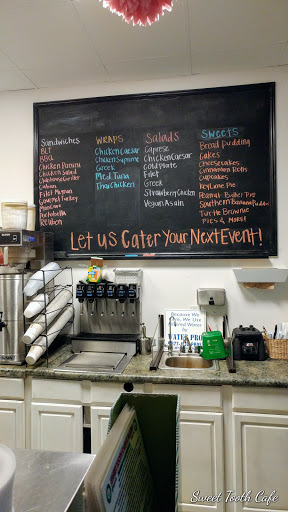 Sandwiches
BLT
BBQ
Chicken Panini
Chicken Salad
Chipotle Cheese Griller
Cuban
Filet Mignon
Gourmet Turkey
Portobella
Reuben
WRAPS
Chicken Caesar
Chicken Supreme
Greek
Med. Tuna
Thai Chicken
Salads
Caprese
Chicken Caesar
Cold Plate
Filet
Greek
Strawberry Chicken
Vegan Asain
SWEETS
Bread Pudding
Cakes
Cheesecakes
Cinnamon Rolls
Cupcakes
Key Lime Pie
Peanut Butter Pie
Southern Banana Pudding
Turtle Brownie
Pies & More!
LET US CATER YOUR NEXT EVENT!
Because We
Care, We Use
Sweet Tooth Cafe